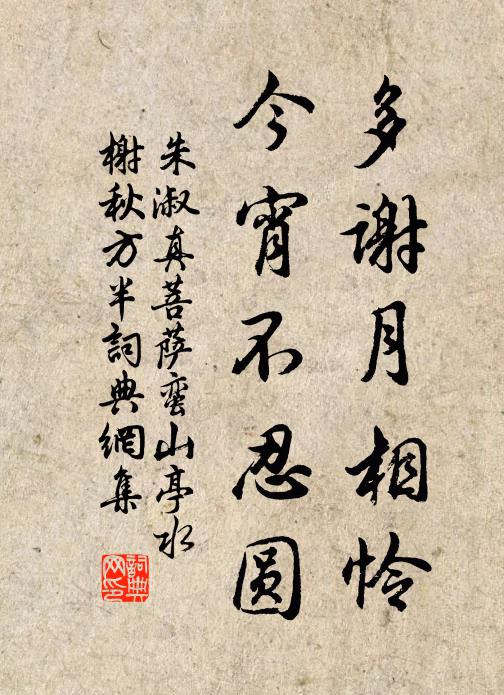 多谢月相怜
今宵不忍圆
朱淑真菩萨蛮山亭水
榭秋方半詞典網集
詞典网印